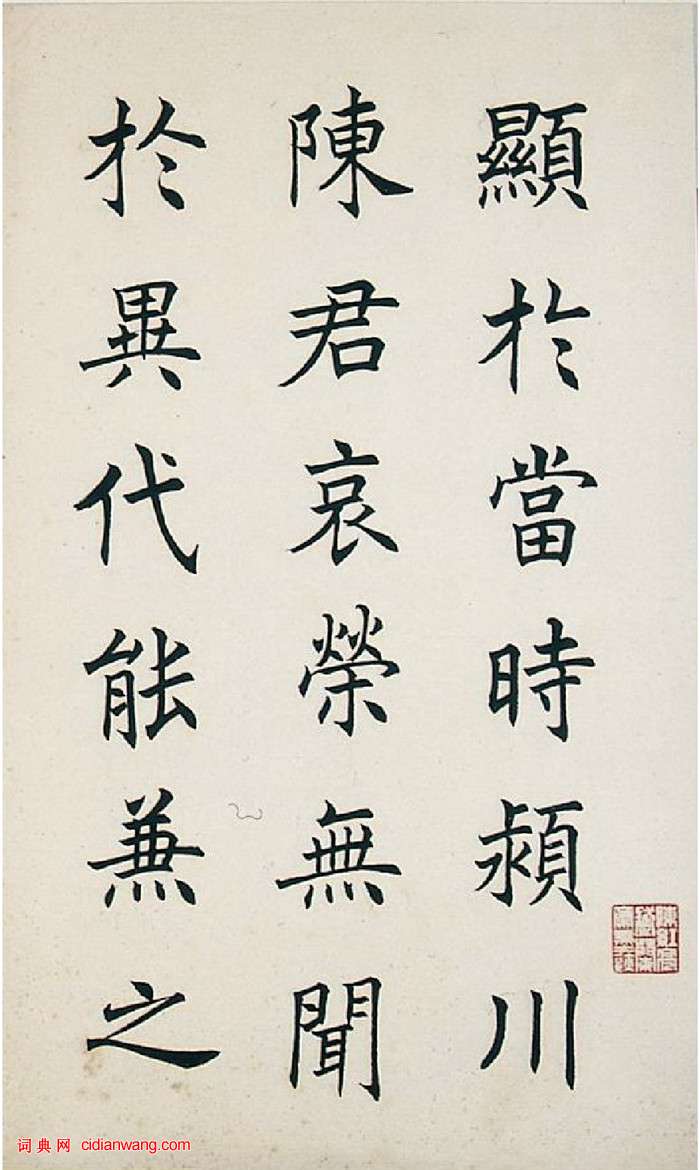 顯於當時潁川
陳君哀榮無聞
於異代能兼之
词典网 cidianwang.com